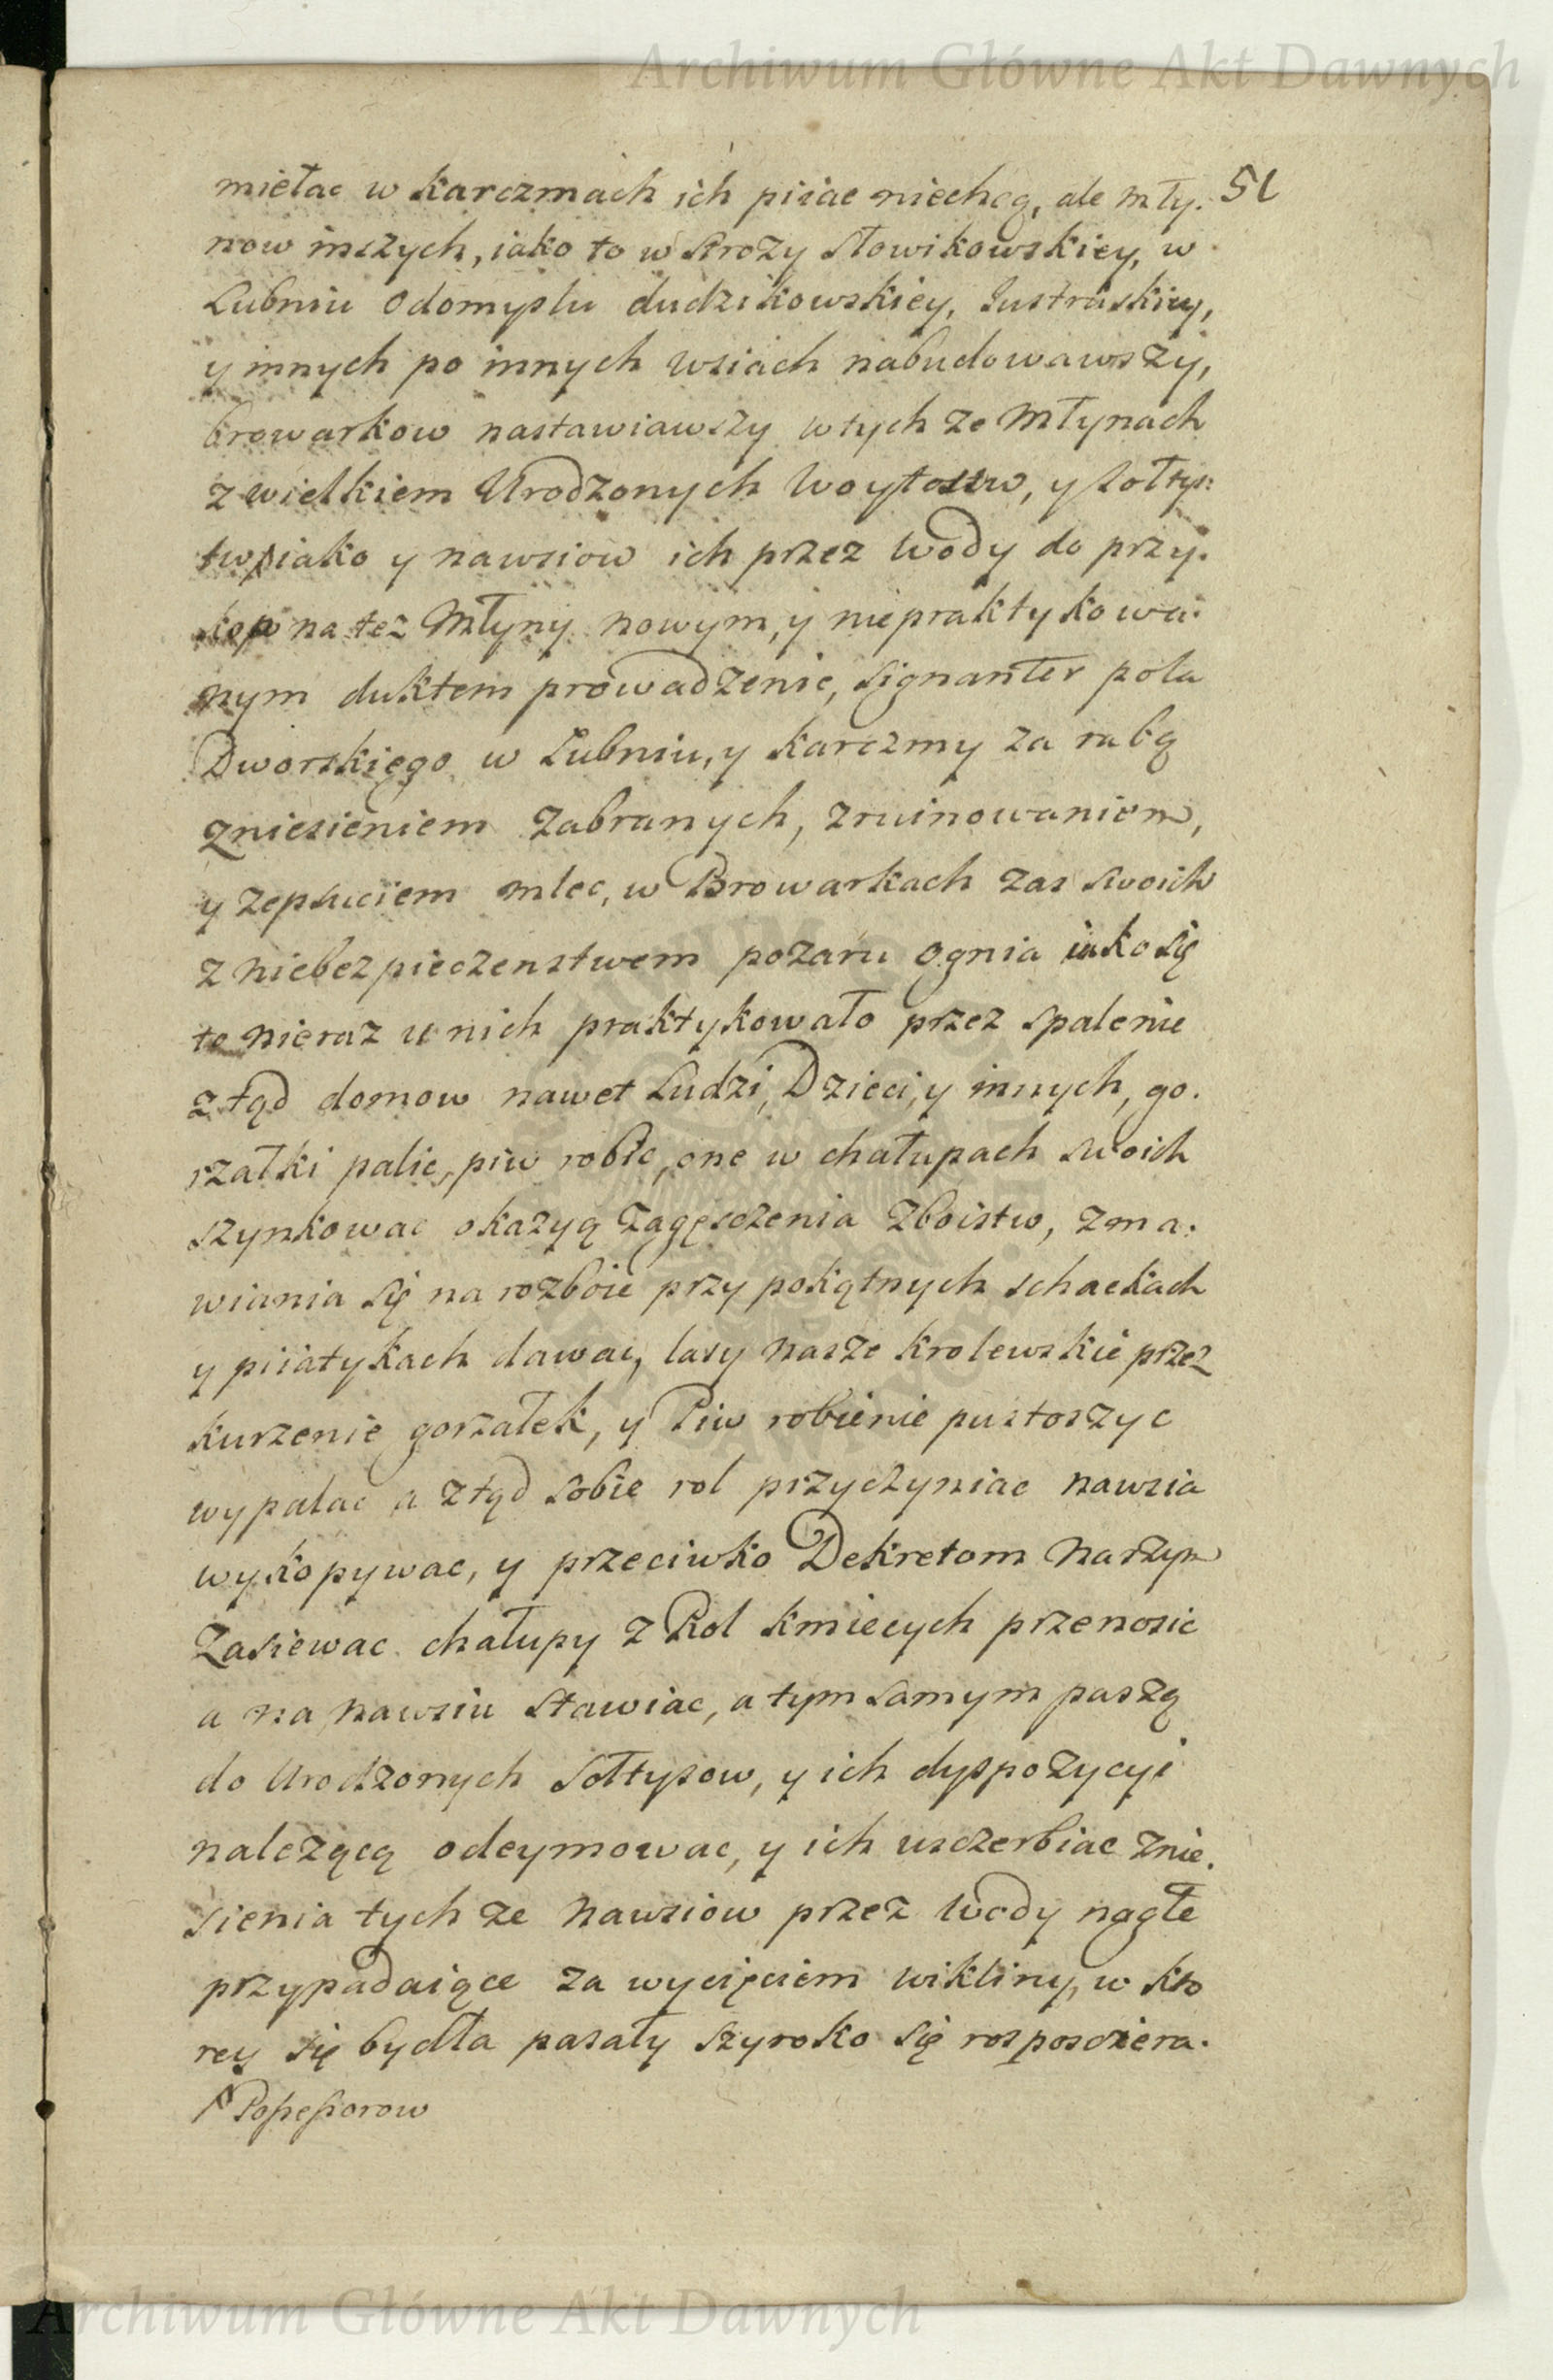 Archiwum Główne Akt Dawnych
miełac w karczmach ich piiac niechcą, ale mły. 51
now inszych, iako to w Stroży Słowikowskiey, w
Lubniu Odomyslu dudzikowskiey, Justruskiey,
y innych po innych wsiach nabudowawszy,
browarkow nastawiawszy w tych ze Młynach
z wielkiem Urodzonych Woytostw, y sołtys:
tw iako y nawsiow ich przez Wody do przy.
kop na też Młyny nowym, y niepraktykowa.
nym duktem prowadzenie, signanter pola
Dworskiego w Lubniu, y karczmy za rabą
zniesieniem zabranych, zruinowaniem,
y zepsuciem mlec, w Browarkach zas swoich
z niebezpieczenstwem pozaru ognia iako się
to nieraz u nich praktykowało przez spalenie
ztąd domow nawet Ludzi, Dzieci, y innych, go.
rzałki palic, piw robic, one w chałupach swoich
szynkowac okazyą zagęsczenia zboistw, zma.
wiania się na rozboie przy pokątnych schackach
y piiatykach dawac, lasy nasze krolewskie przez
kurzenie gorzałek, y Piw robienie pustoszyc
wypalac a ztąd sobie rol przyczyniac nawsia
wykopywac, y przeciwko Dekretom naszym
zasiewac chałupy z Rol kmiecych przenosic
a na nawsiu stawiac, a tym samym paszą
do Urodzonych Sołtysow, y ich dyspozycyi
nalezącą odeymowac, y ich usczerbiac znie.
sienia tych ze nawsiow przez Wody nagłe
przypadaiące za wycięciem wikliny, w kto
rey się bydła pasały szyroko się rosposciera.
Possessorow
Archiwum Główne Akt Dawnych